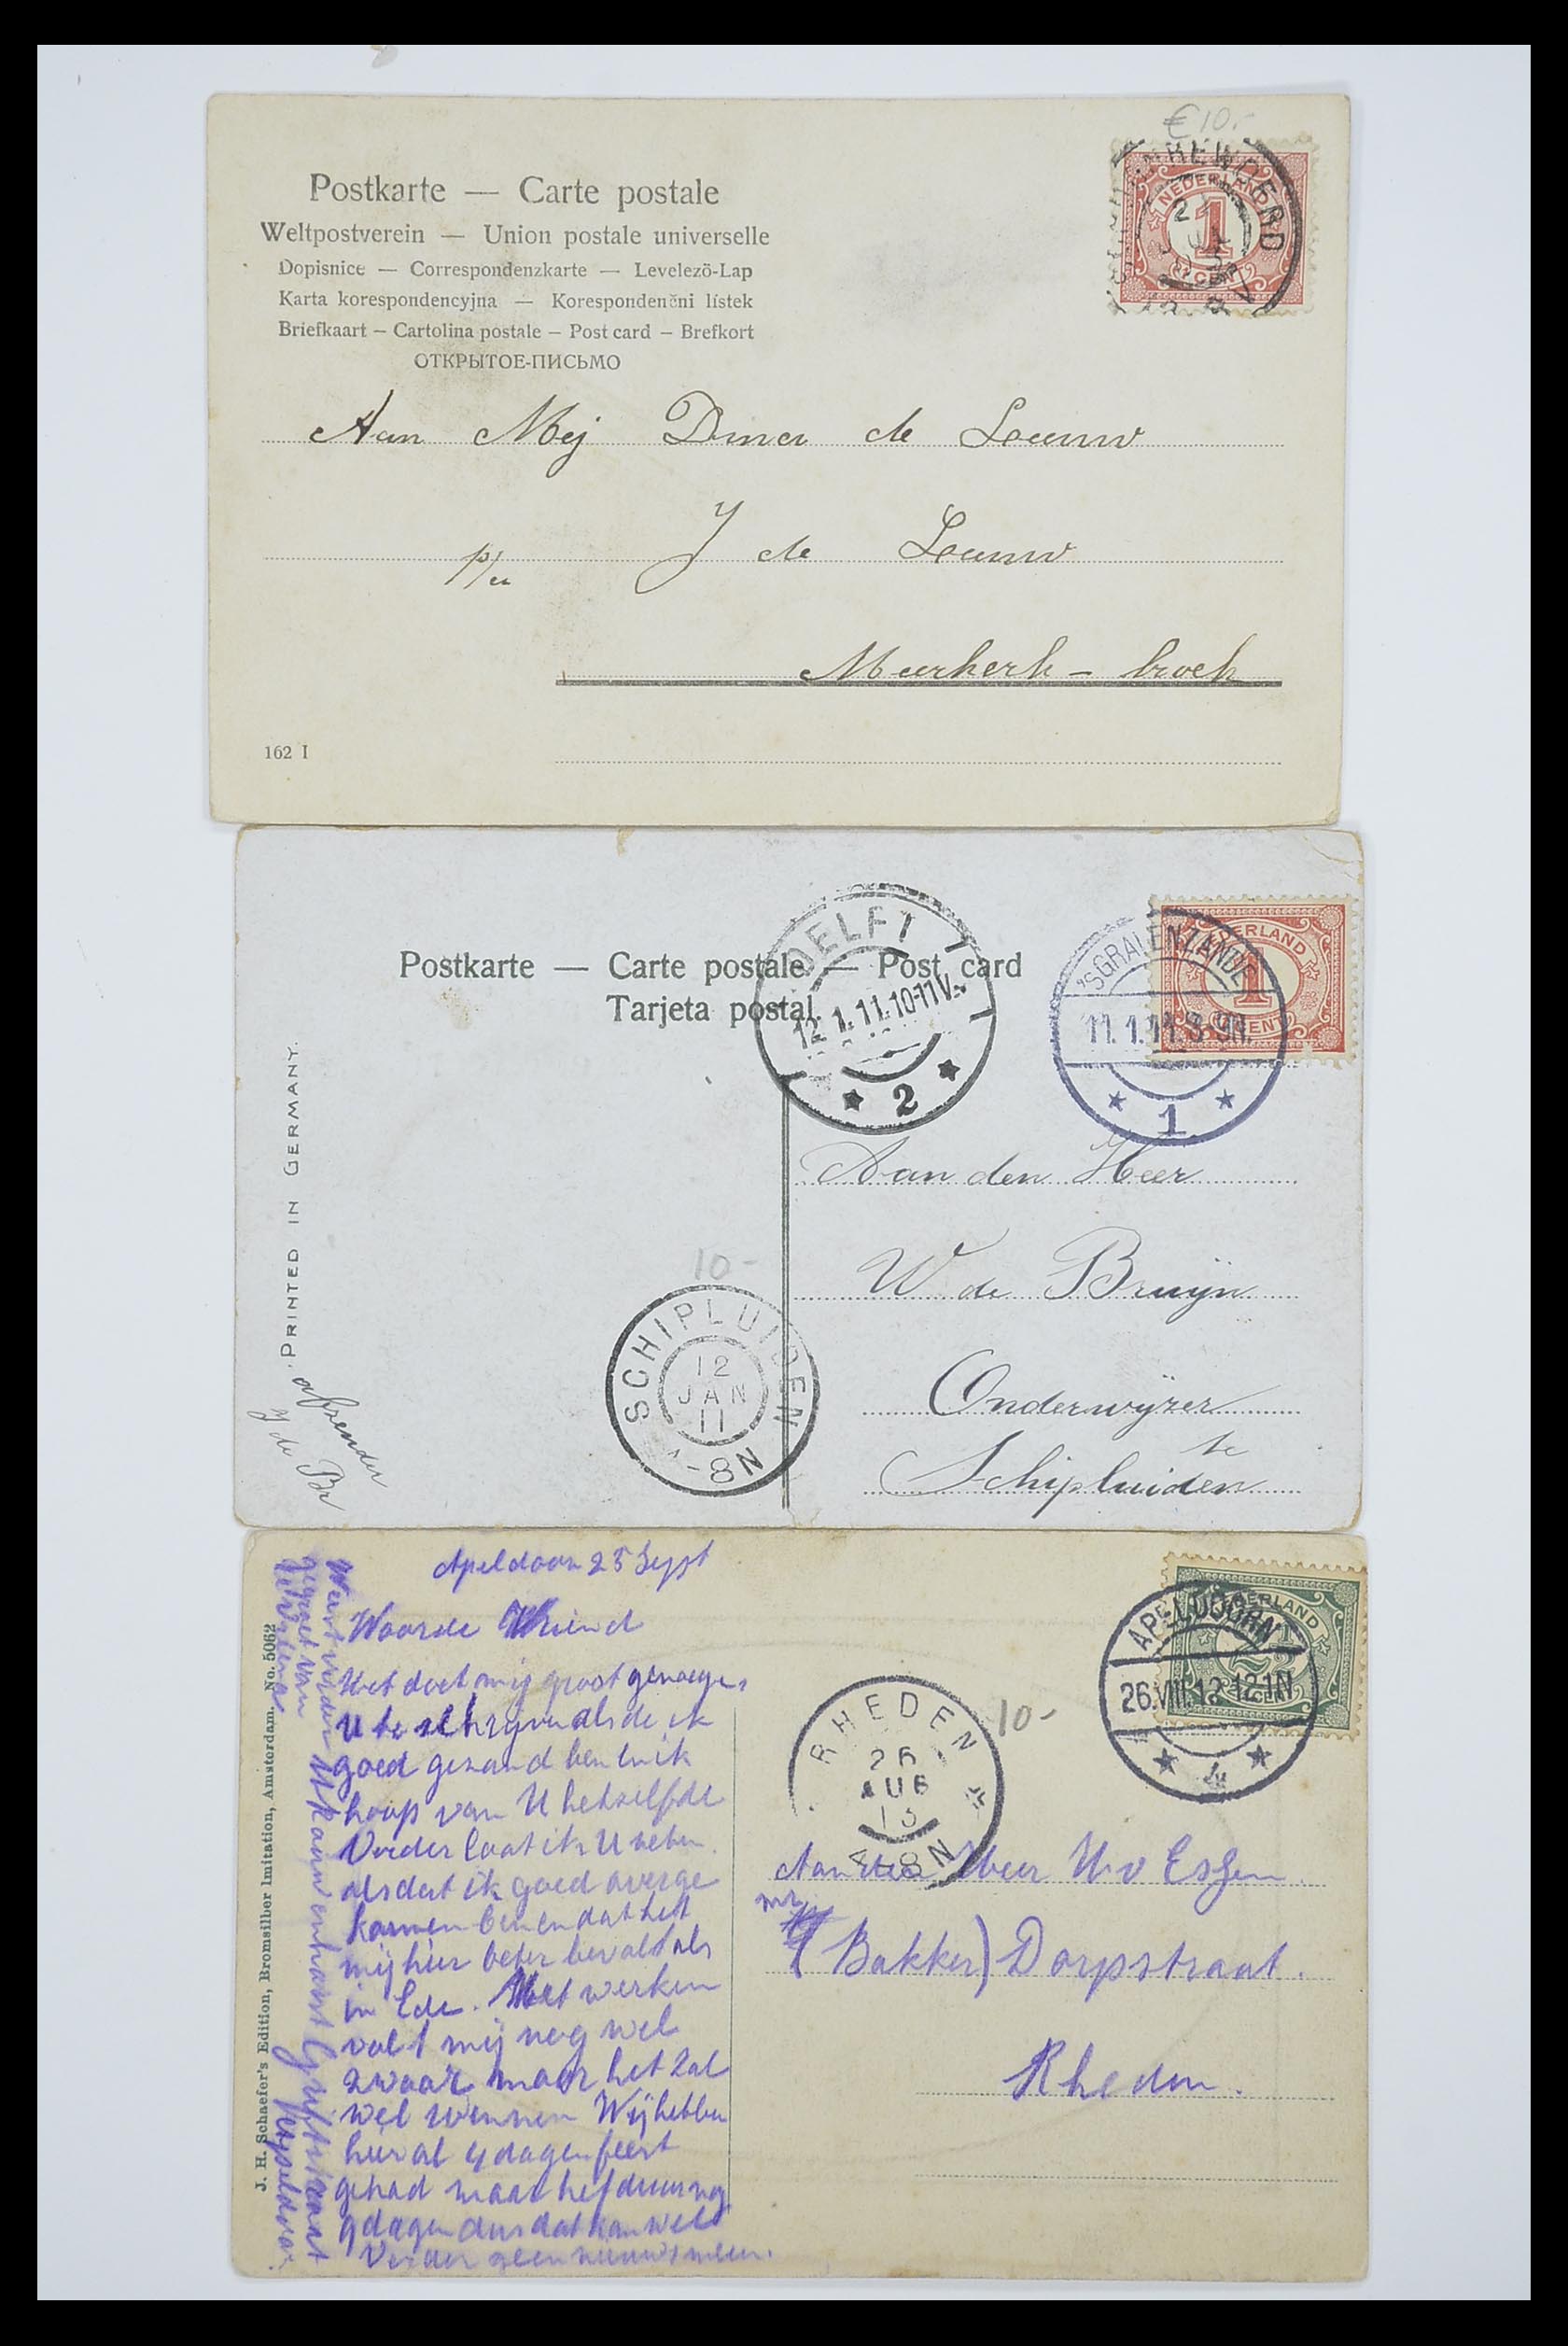 €10.-
NEDERLAND
1
CENT
Postkarte — Carte postale
Weltpostverein — Union postale universelle
Dopisnice — Correspondenzkarte — Levelező-Lap
Karta korespondencyjna — Korespondenčni lístek
Briefkaart – Cartolina postale – Post card – Brefkort
ОТКРЫТОЕ-ПИСЬМО
Aan Mej Dina de Leeuw
p/a J de Leeuw
Meerkerk - broek
162 I
Postkarte — Carte postale — Post card
Tarjeta postal.
DELFT
12.1.11.10-11V.
2
'SGRAVENZANDE
11.1.11.8-9N.
1
1
CENT
PRINTED IN GERMANY.
Aan den Heer
W de Bruijn
Onderwijzer
te
Schipluiden
10-
SCHIPLUIDEN
12
JAN
11
-8N
afzender
J de Br
Apeldoorn 25 Sept
Waarde Vriend
Het doet mij groot genoegen
U te schrijven als de ik
goed gezond ben en ik
hoop van U hetzelfde
Verder laat ik U weten
als dat ik goed overge
komen ben en dat het
mij hier beter bevalt als
in Ede. Het werken
valt mij nog wel
zwaar maar het zal
wel wennen Wij hebben
hier al 4 dagen feest
gehad maar het duur nog
9 dagen dus dat kan wel
Verder geen nieuws meer.
J. H. Schaefer's Edition, Bromsilber Imitation, Amsterdam. No. 5062
APELDOORN
26.VIII.13 12-1N
4
NEDERLAND
2½
CENT
RHEDEN
26
AUG
13
4-8N
10-
Aan den Heer H v Essen
mr
(Bakker) Dorpstraat.
Rheden.